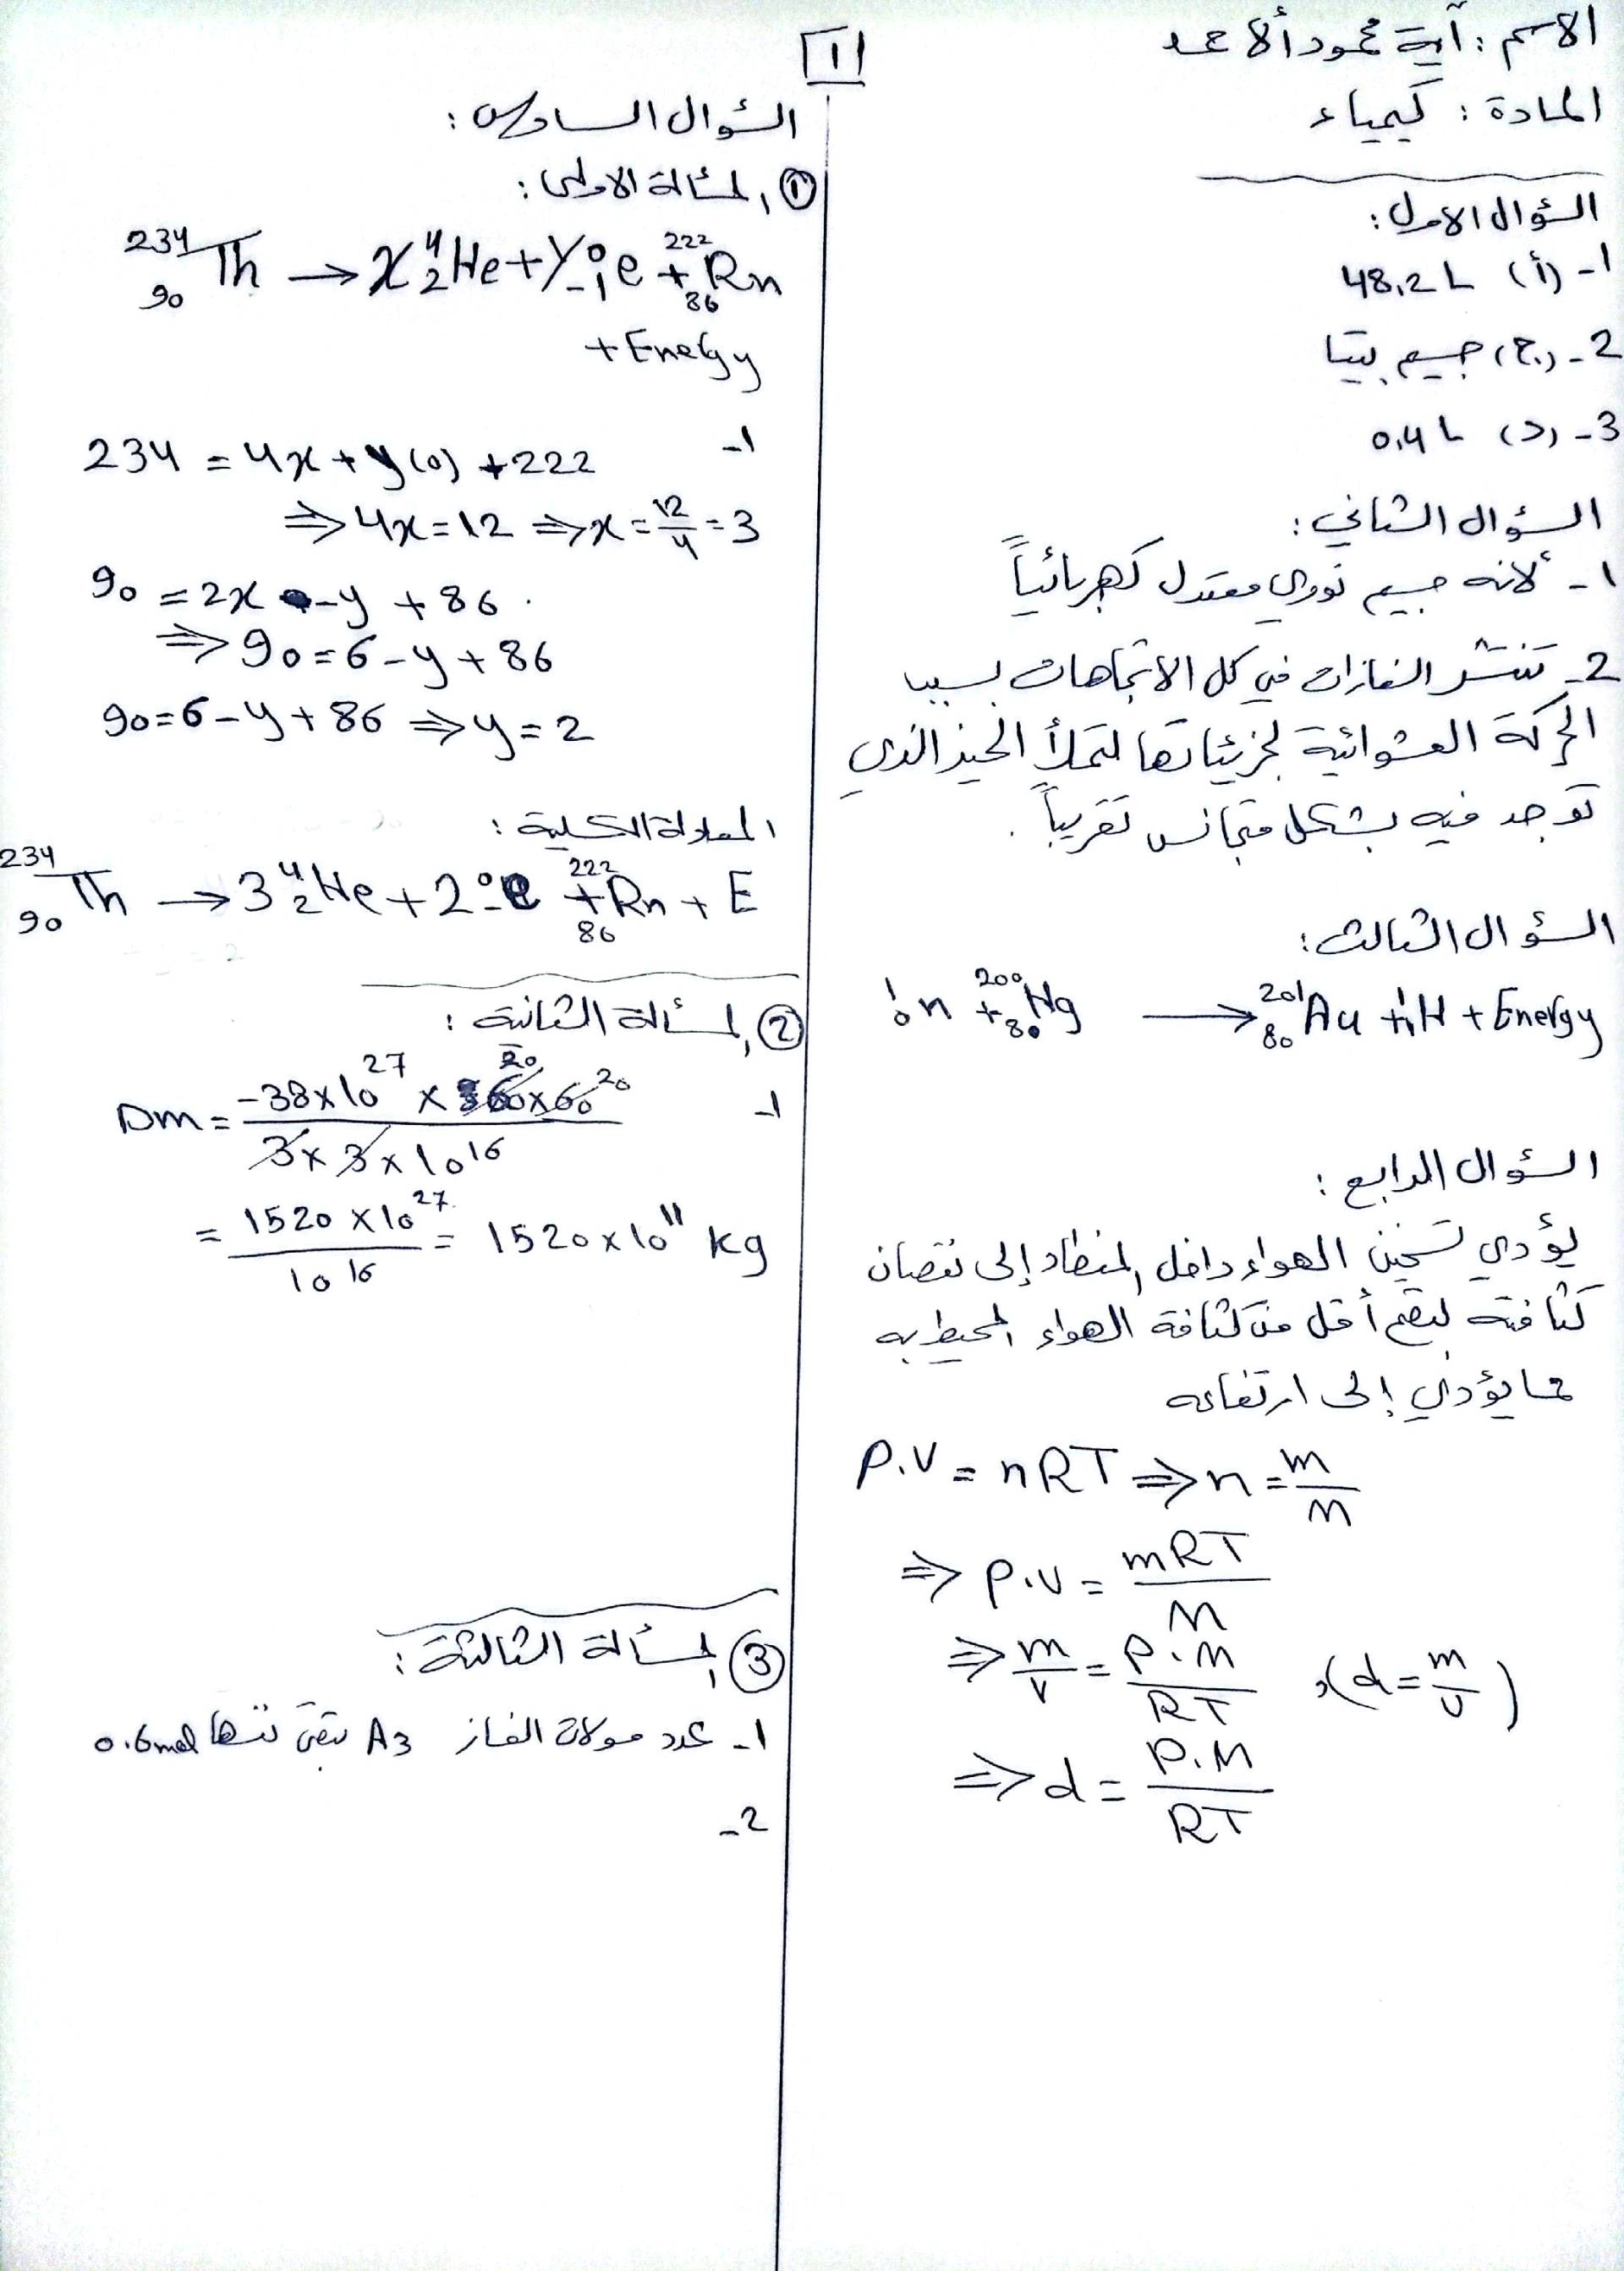 الاسم : آية محمود الأحمد
المادة : كيمياء
[1]
السؤال الأول :
1- (أ) 48,2 L
2- (ج) جسيم بيتا
3- (د) 0,4 L
السؤال الثاني :
1- لأنه جسيم نووي معتدل كهربائياً
2- تنتشر الغازات في كل الاتجاهات بسبب
الحركة العشوائية لجزيئاتها لتملأ الحيز الذي
توجد فيه بشكل متجانس تقريباً .
السؤال الثالث :
¹₀n + ²⁰⁰₈₀Hg → ²⁰¹₈₀Au + ¹₁H + Energy
السؤال الرابع :
يؤدي تسخين الهواء داخل المنطاد إلى نقصان
كثافته لتصبح أقل من كثافة الهواء المحيط به
مما يؤدي إلى ارتفاعه
P.V = nRT ⇒ n = m/M
⇒ P.V = mRT/M
⇒ m/V = P.M/RT , (d = m/V)
⇒ d = P.M/RT
السؤال السادس :
① المسألة الأولى :
²³⁴₉₀Th → x ⁴₂He + y ⁰₋₁e + ²²²₈₆Rn
+ Energy
1- 234 = 4x + y(0) + 222
⇒ 4x = 12 ⇒ x = 12/4 = 3
90 = 2x - y + 86
⇒ 90 = 6 - y + 86
90 = 6 - y + 86 ⇒ y = 2
المعادلة الكلية :
²³⁴₉₀Th → 3 ⁴₂He + 2 ⁰₋e + ²²²₈₆Rn + E
② المسألة الثانية :
1- Dm = -38×10²⁷ × 60×60 / 3×3×10¹⁶
20 20
= 1520×10²⁷ / 10¹⁶ = 1520×10¹¹ kg
③ المسألة الثالثة :
1- عدد مولات الغاز A3 تبقى نفسها 0.6mol
2-